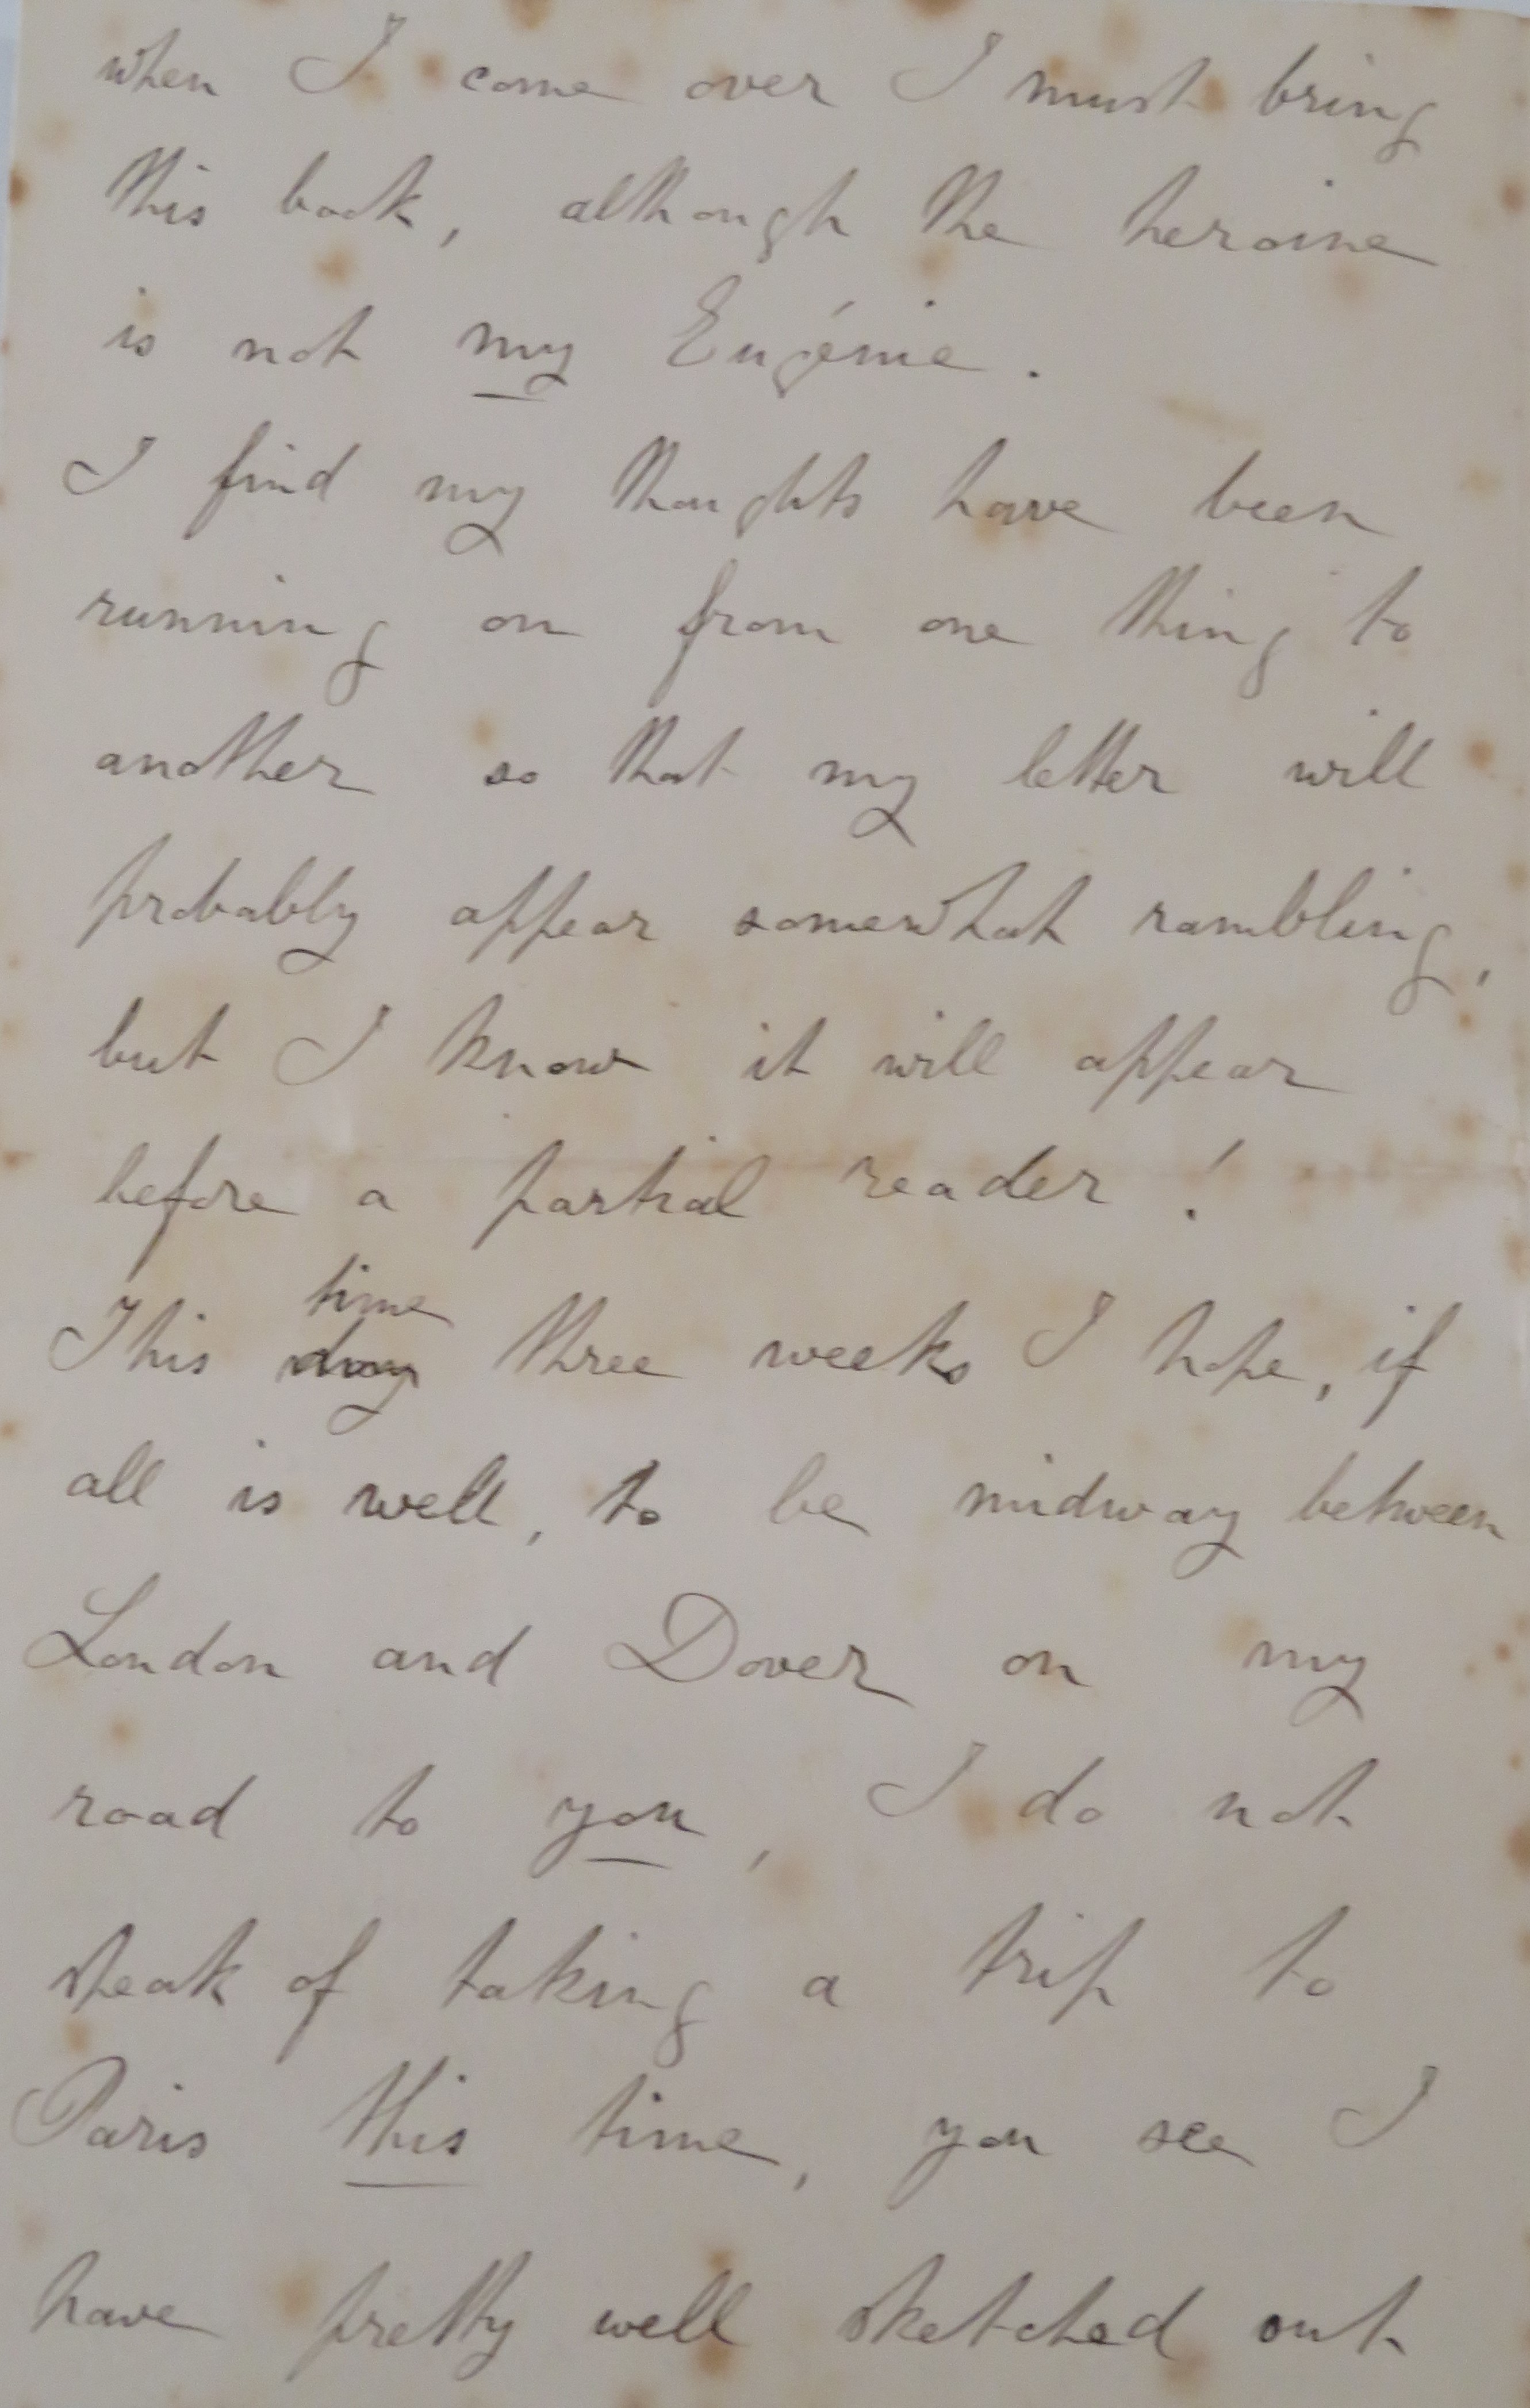 when I come over I must bring
this book, although the heroine
is not my Eugénie.
I find my thoughts have been
running on from one thing to
another so that my letter will
probably appear somewhat rambling,
but I know it will appear
before a partial reader!
time
This day three weeks I hope, if
all is well, to be midway between
London and Dover on my
road to you, I do not
speak of taking a trip to
Paris this time, you see I
have pretty well sketched out